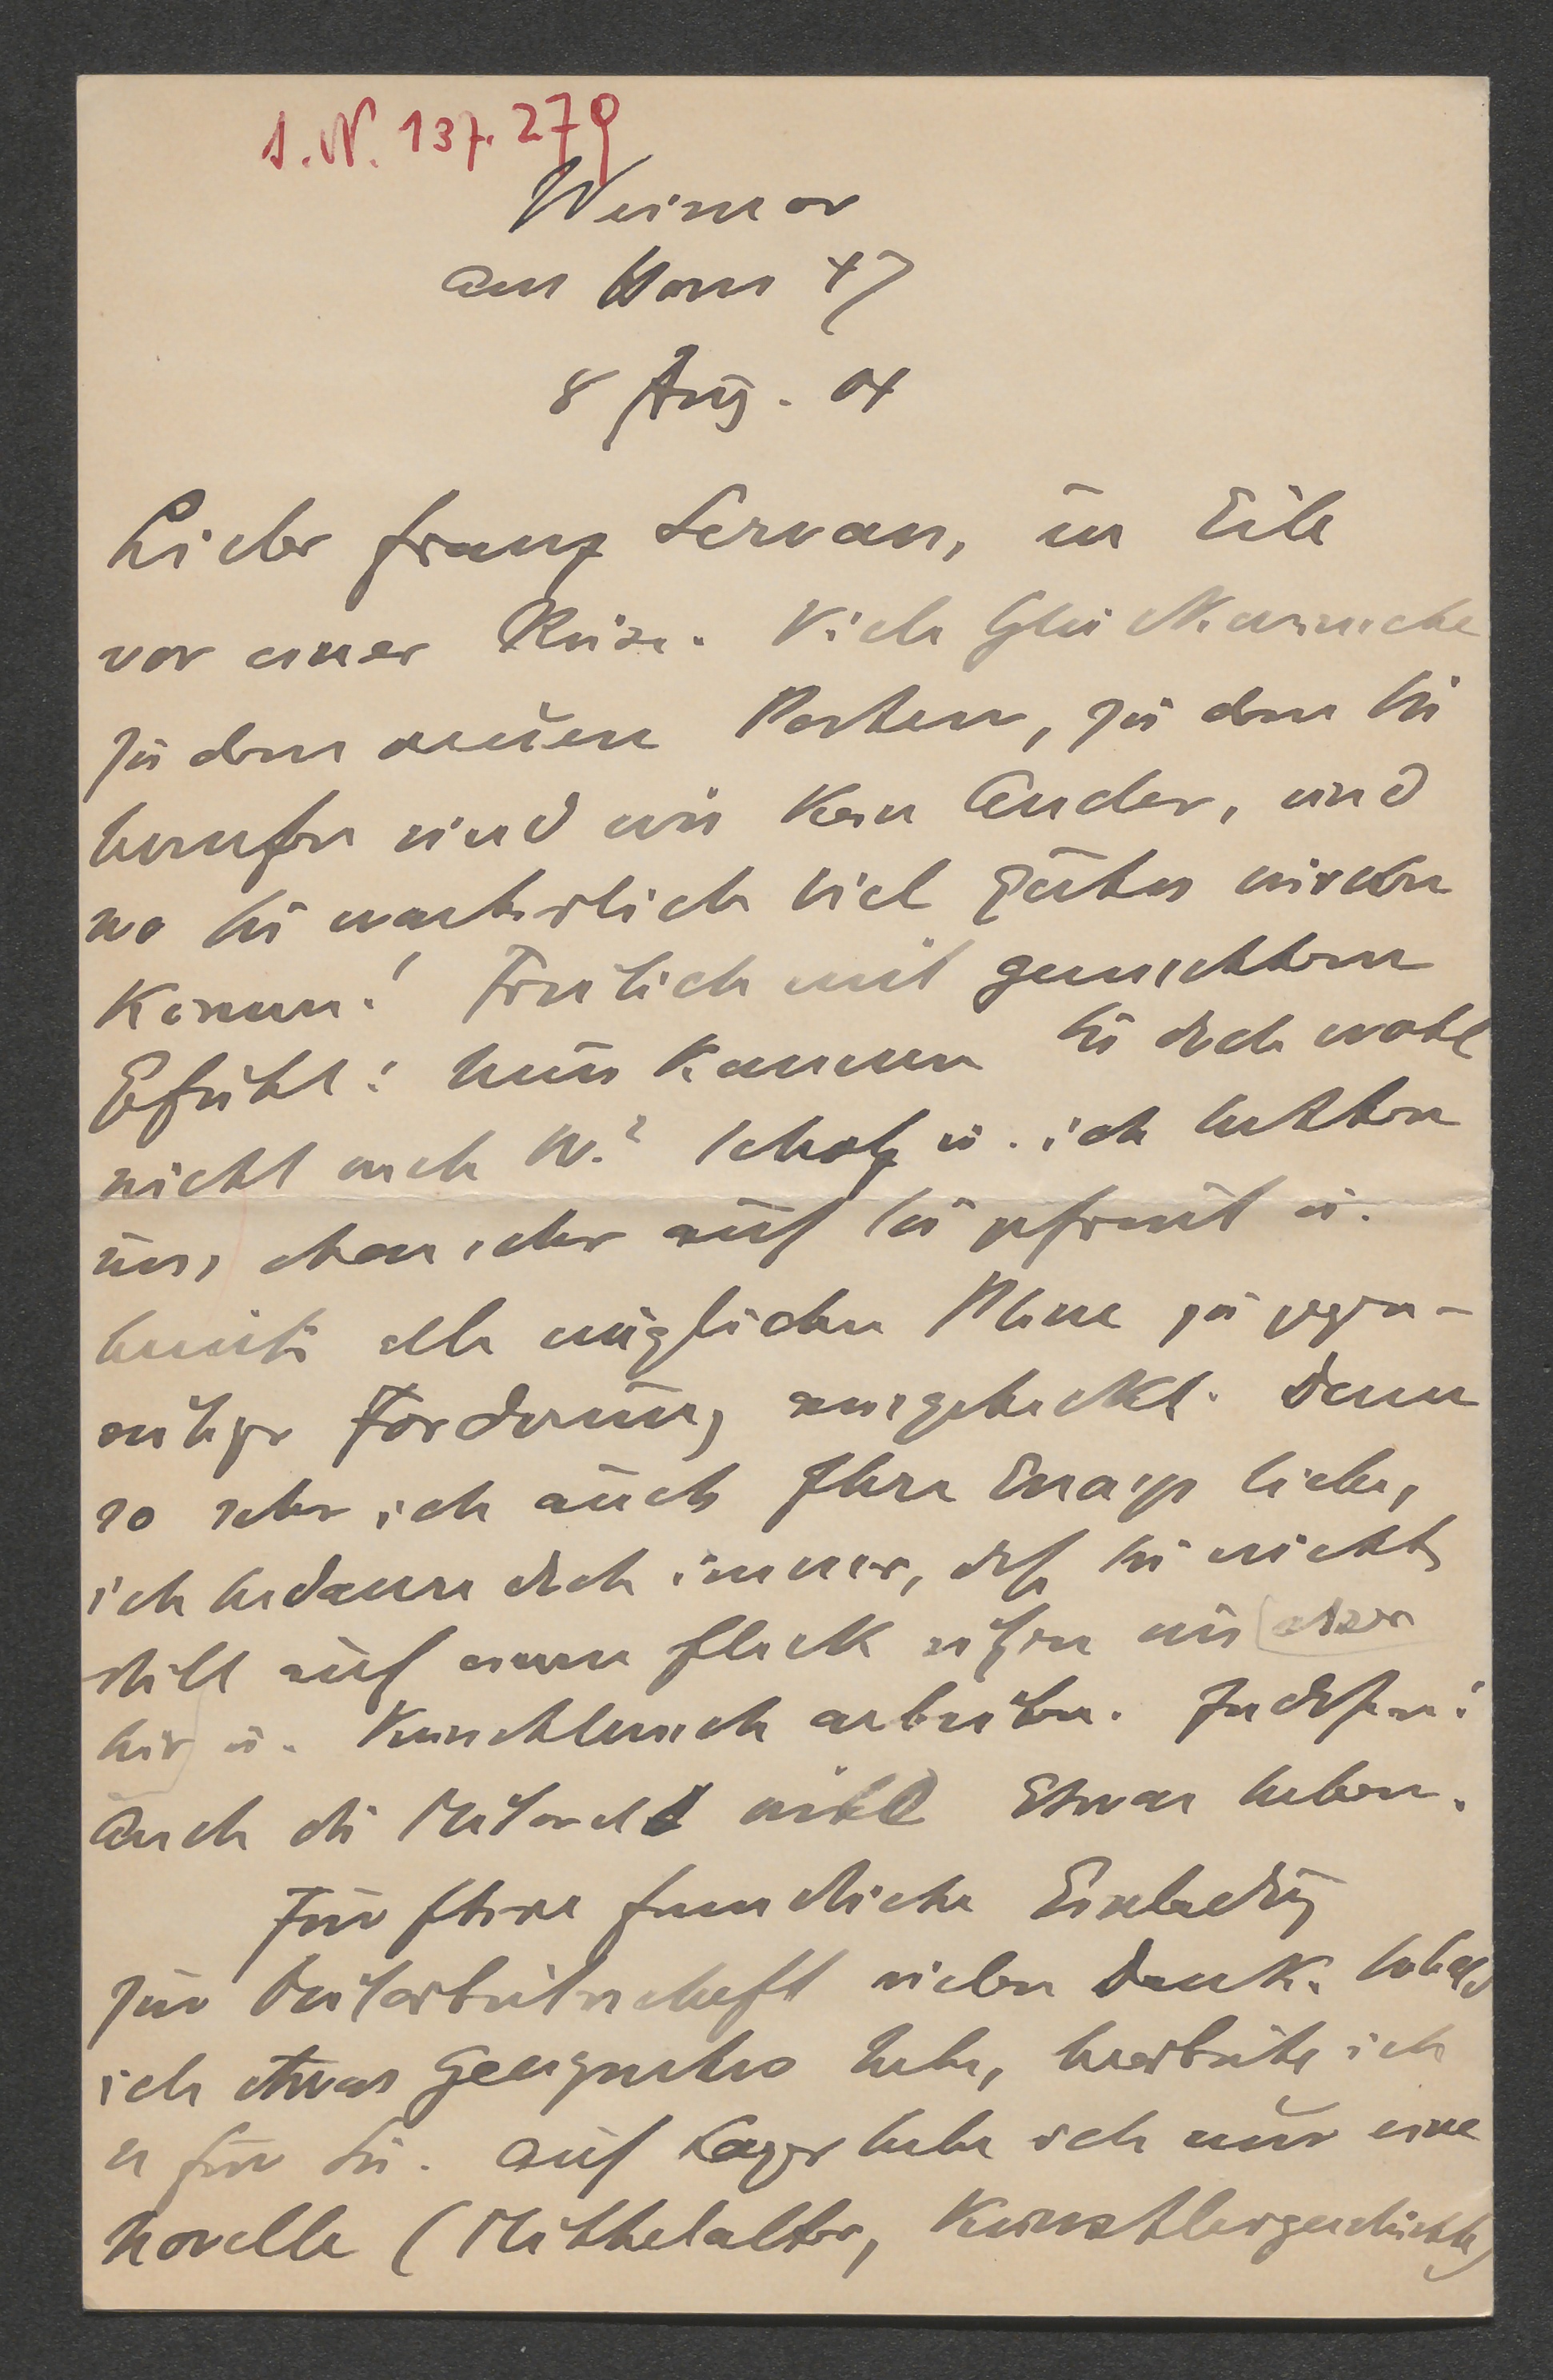 I. N. 137.279
Weimar
am Horn 47
8 Aug. 04
Lieber Franz Servaes, in Eile
vor einer Reise. Viele Glückwünsche
zu dem neuen Posten, zu dem Sie
berufen sind wie kein Andrer, und
wo Sie natürlich viel Gutes wirken
können! Freilich mit gemischtem
Gefühl: nun kommen Sie doch wohl
nicht nach W.? Scholz u. ich hatten
uns schon sehr auf Sie gefreut u.
bereits alle möglichen Pläne zu gegen-
seitiger Förderung ausgeheckt. Denn
so sehr ich auch Ihre Essays liebe,
ich bedaure doch immer, daß Sie nicht
still auf einem Fleck sitzen wie
hier u. künstlerisch arbeiten. Indessen:
Auch die Mitwelt will Etwas haben.
Für Ihre freundliche Einladung
zur Mitarbeiterschaft vielen Dank. Sobald
ich etwas Geeignetes habe, bearbeite ich
es für Sie. Auf Lager habe ich nur eine
Novelle (Mittelalter, Künstlergeschichte)